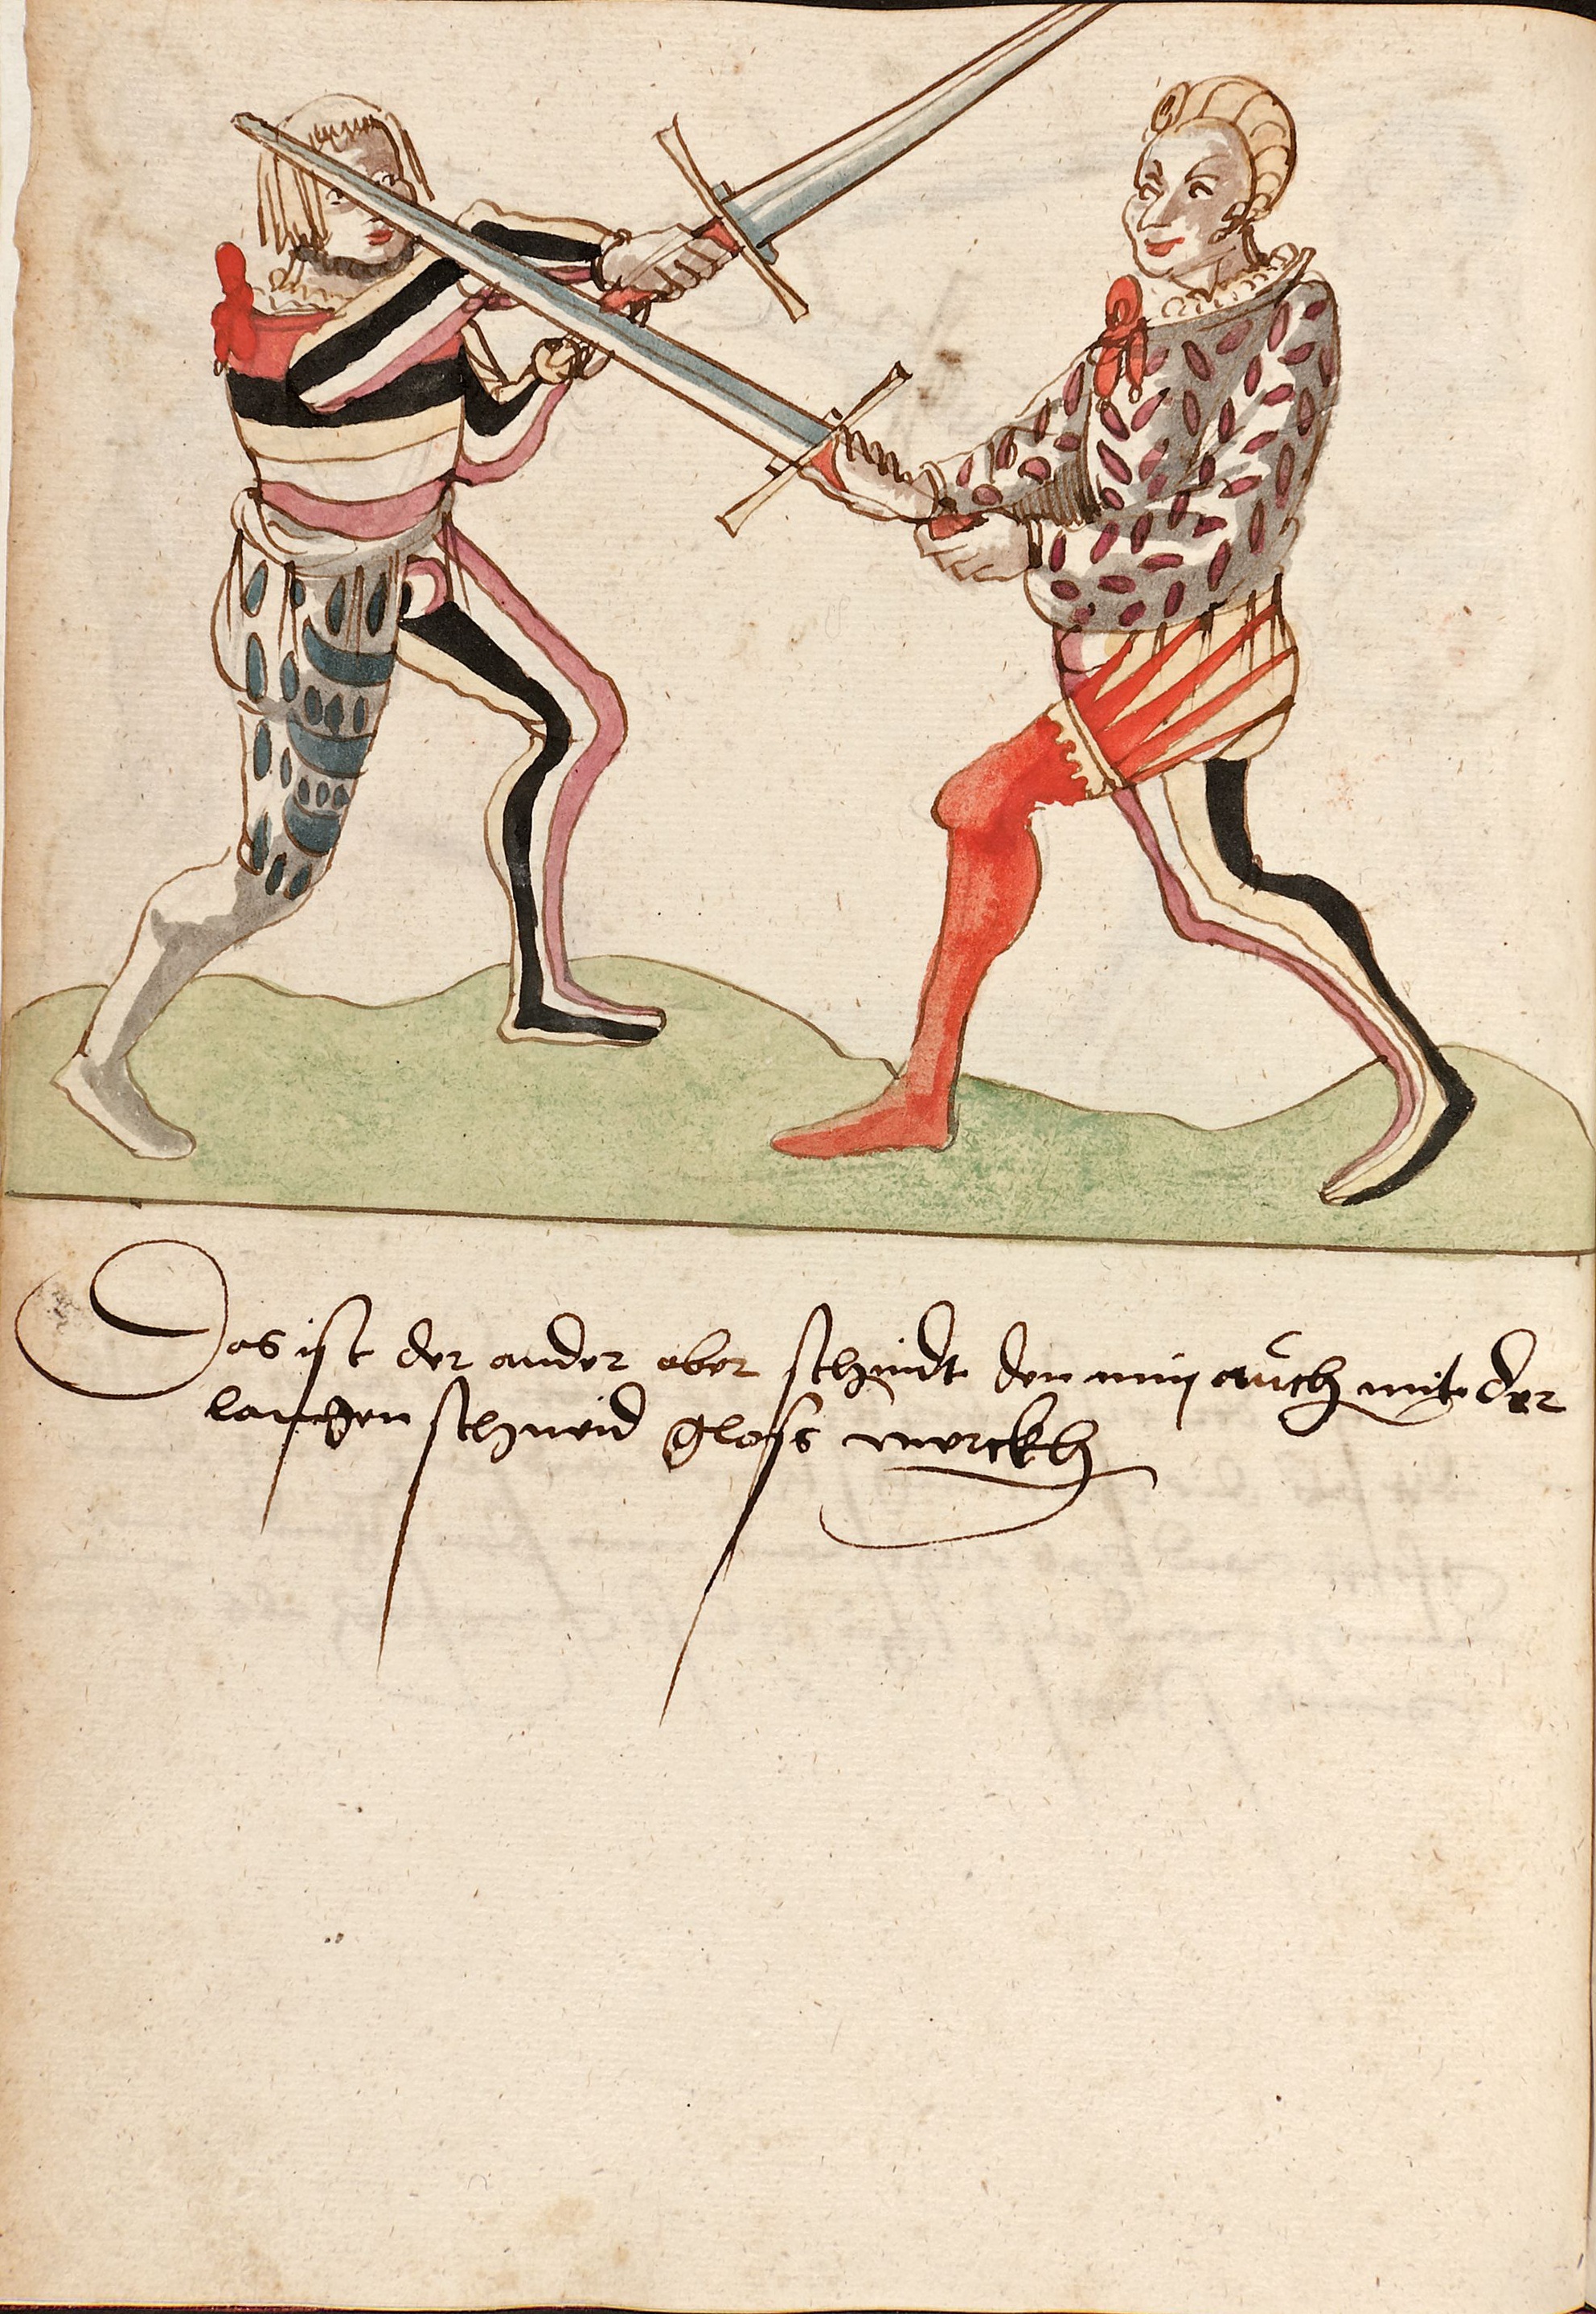 Das ist der ander aber schnidt den nim auch mit der
langen schneid gloss merckh